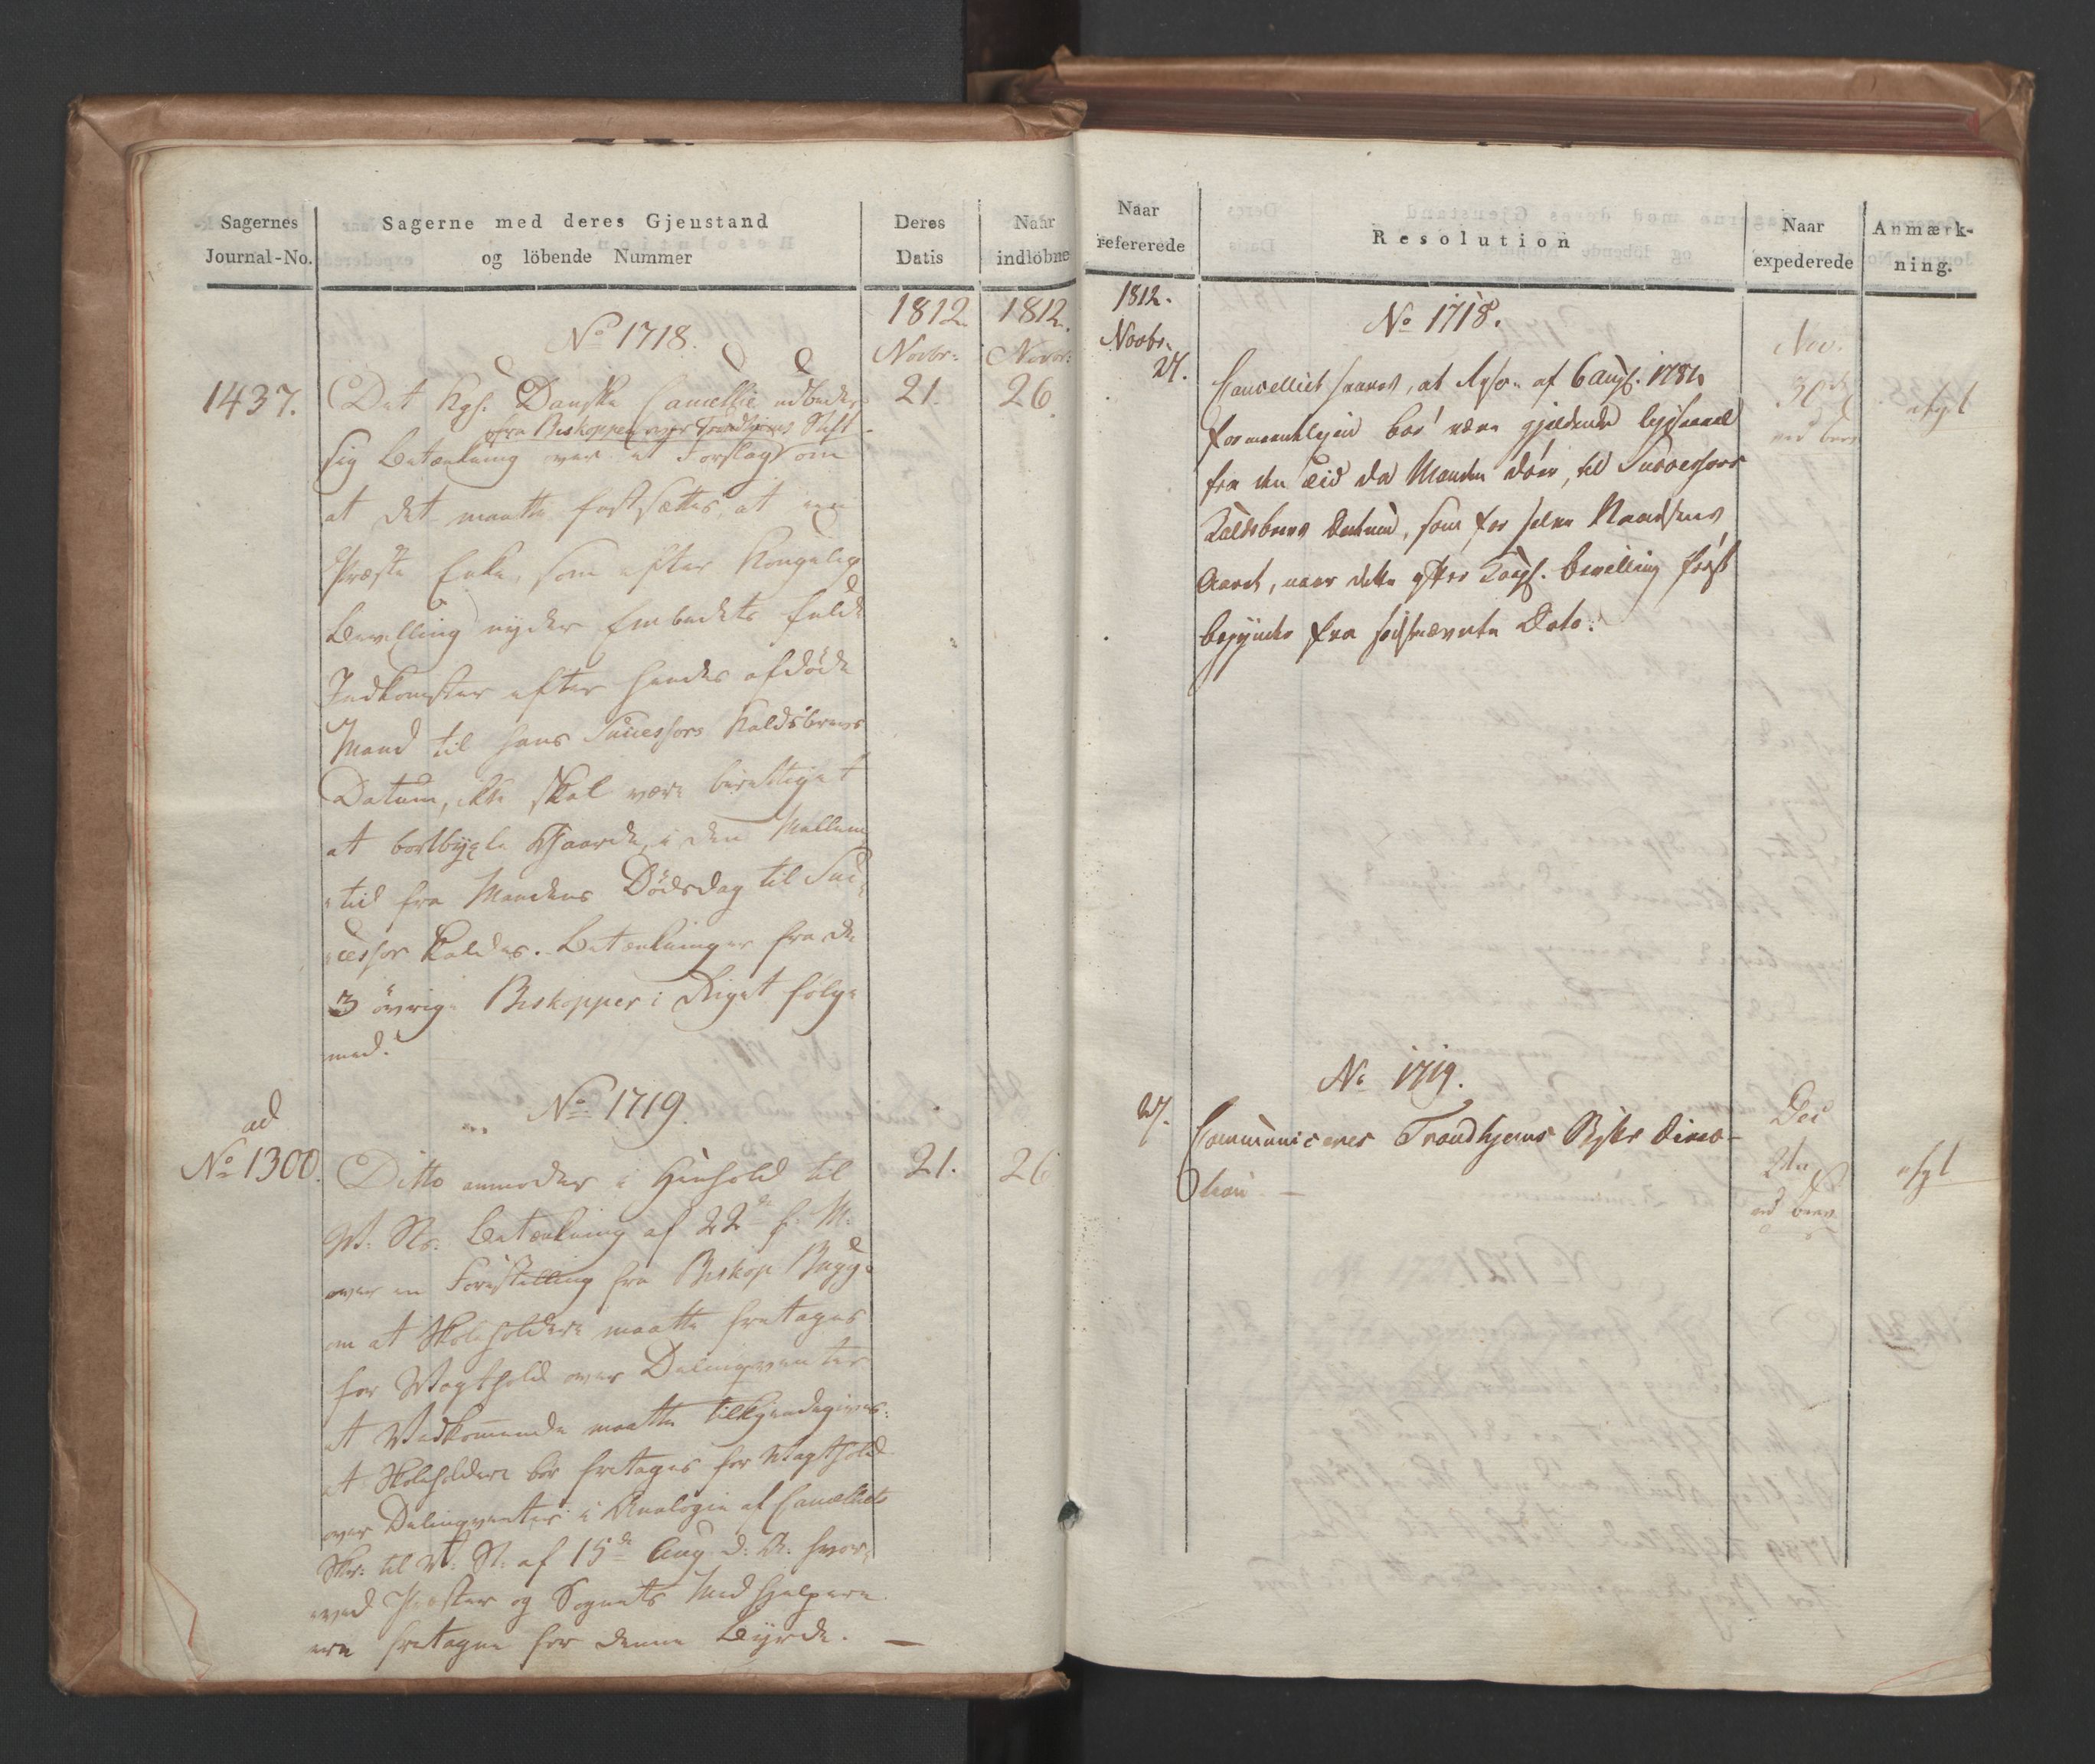 Sagernes
Journal-No.
Sagerne med deres Gjenstand
og löbende Nummer
Deres
Datis
Naar
indlöbne
1812.
Novbr:
1812.
Novbr:
No 1718.
1437.
21.
26.
Det Kgl. Danske Cancellie udbeder
fra Biskoppen over Trondhjems Stift
sig Betænkning over et Forslag om
at det maatte fastsættes, at en
Præste Enke, som efter Kongelig
Bevilling nyder Embedets fulde
Indkomster efter hendes afdöde
Mand til hans Successors Kaldsbrevs
Datum, ikke skal være berettiget
at bortbygle Gaarde, i den Mellem
tid fra Mandens Dödsdag til Suc-
cessor kaldes. Betænkninger fra de
3 övrige Biskopper i Riget fölge
med.
No 1719.
ad
No 1300.
21.
26
Ditto anmoder i Henhold til
Betænkning af 22de f: M:
over en Forestilling fra Biskop Bugge
om at Skoleholdere maatte fritages
for Vagthold over Delinqventer
at Vedkommende maatte tilkjendegives:
at Skoleholdere bör fritages for Vagthold
over Delinqventer i Analogie af Cancelliets
Skr: til af 15de Aug. d: A: hvor-
ved Præster og Sognets Medhjelpere
ere fritagne for denne Byrde. —
Naar
refererede
Resolution
Naar
expederede
Anmærk-
ning.
1812.
Novbr.
27.
No 1718.
Nov.
30
Cancelliet svares, at af 6 Aug.
bör være gjeldende
fra den Tid da Manden döer, til Successors
Kaldsbrevs Datum, som for selve Naadsens
Aaret, naar dette efter Kongl. Bevilling först
begynder fra sidstnævnte Dato.
No 1719.
27.
Dec
Communiceres Trondhjems Direc-
tion —